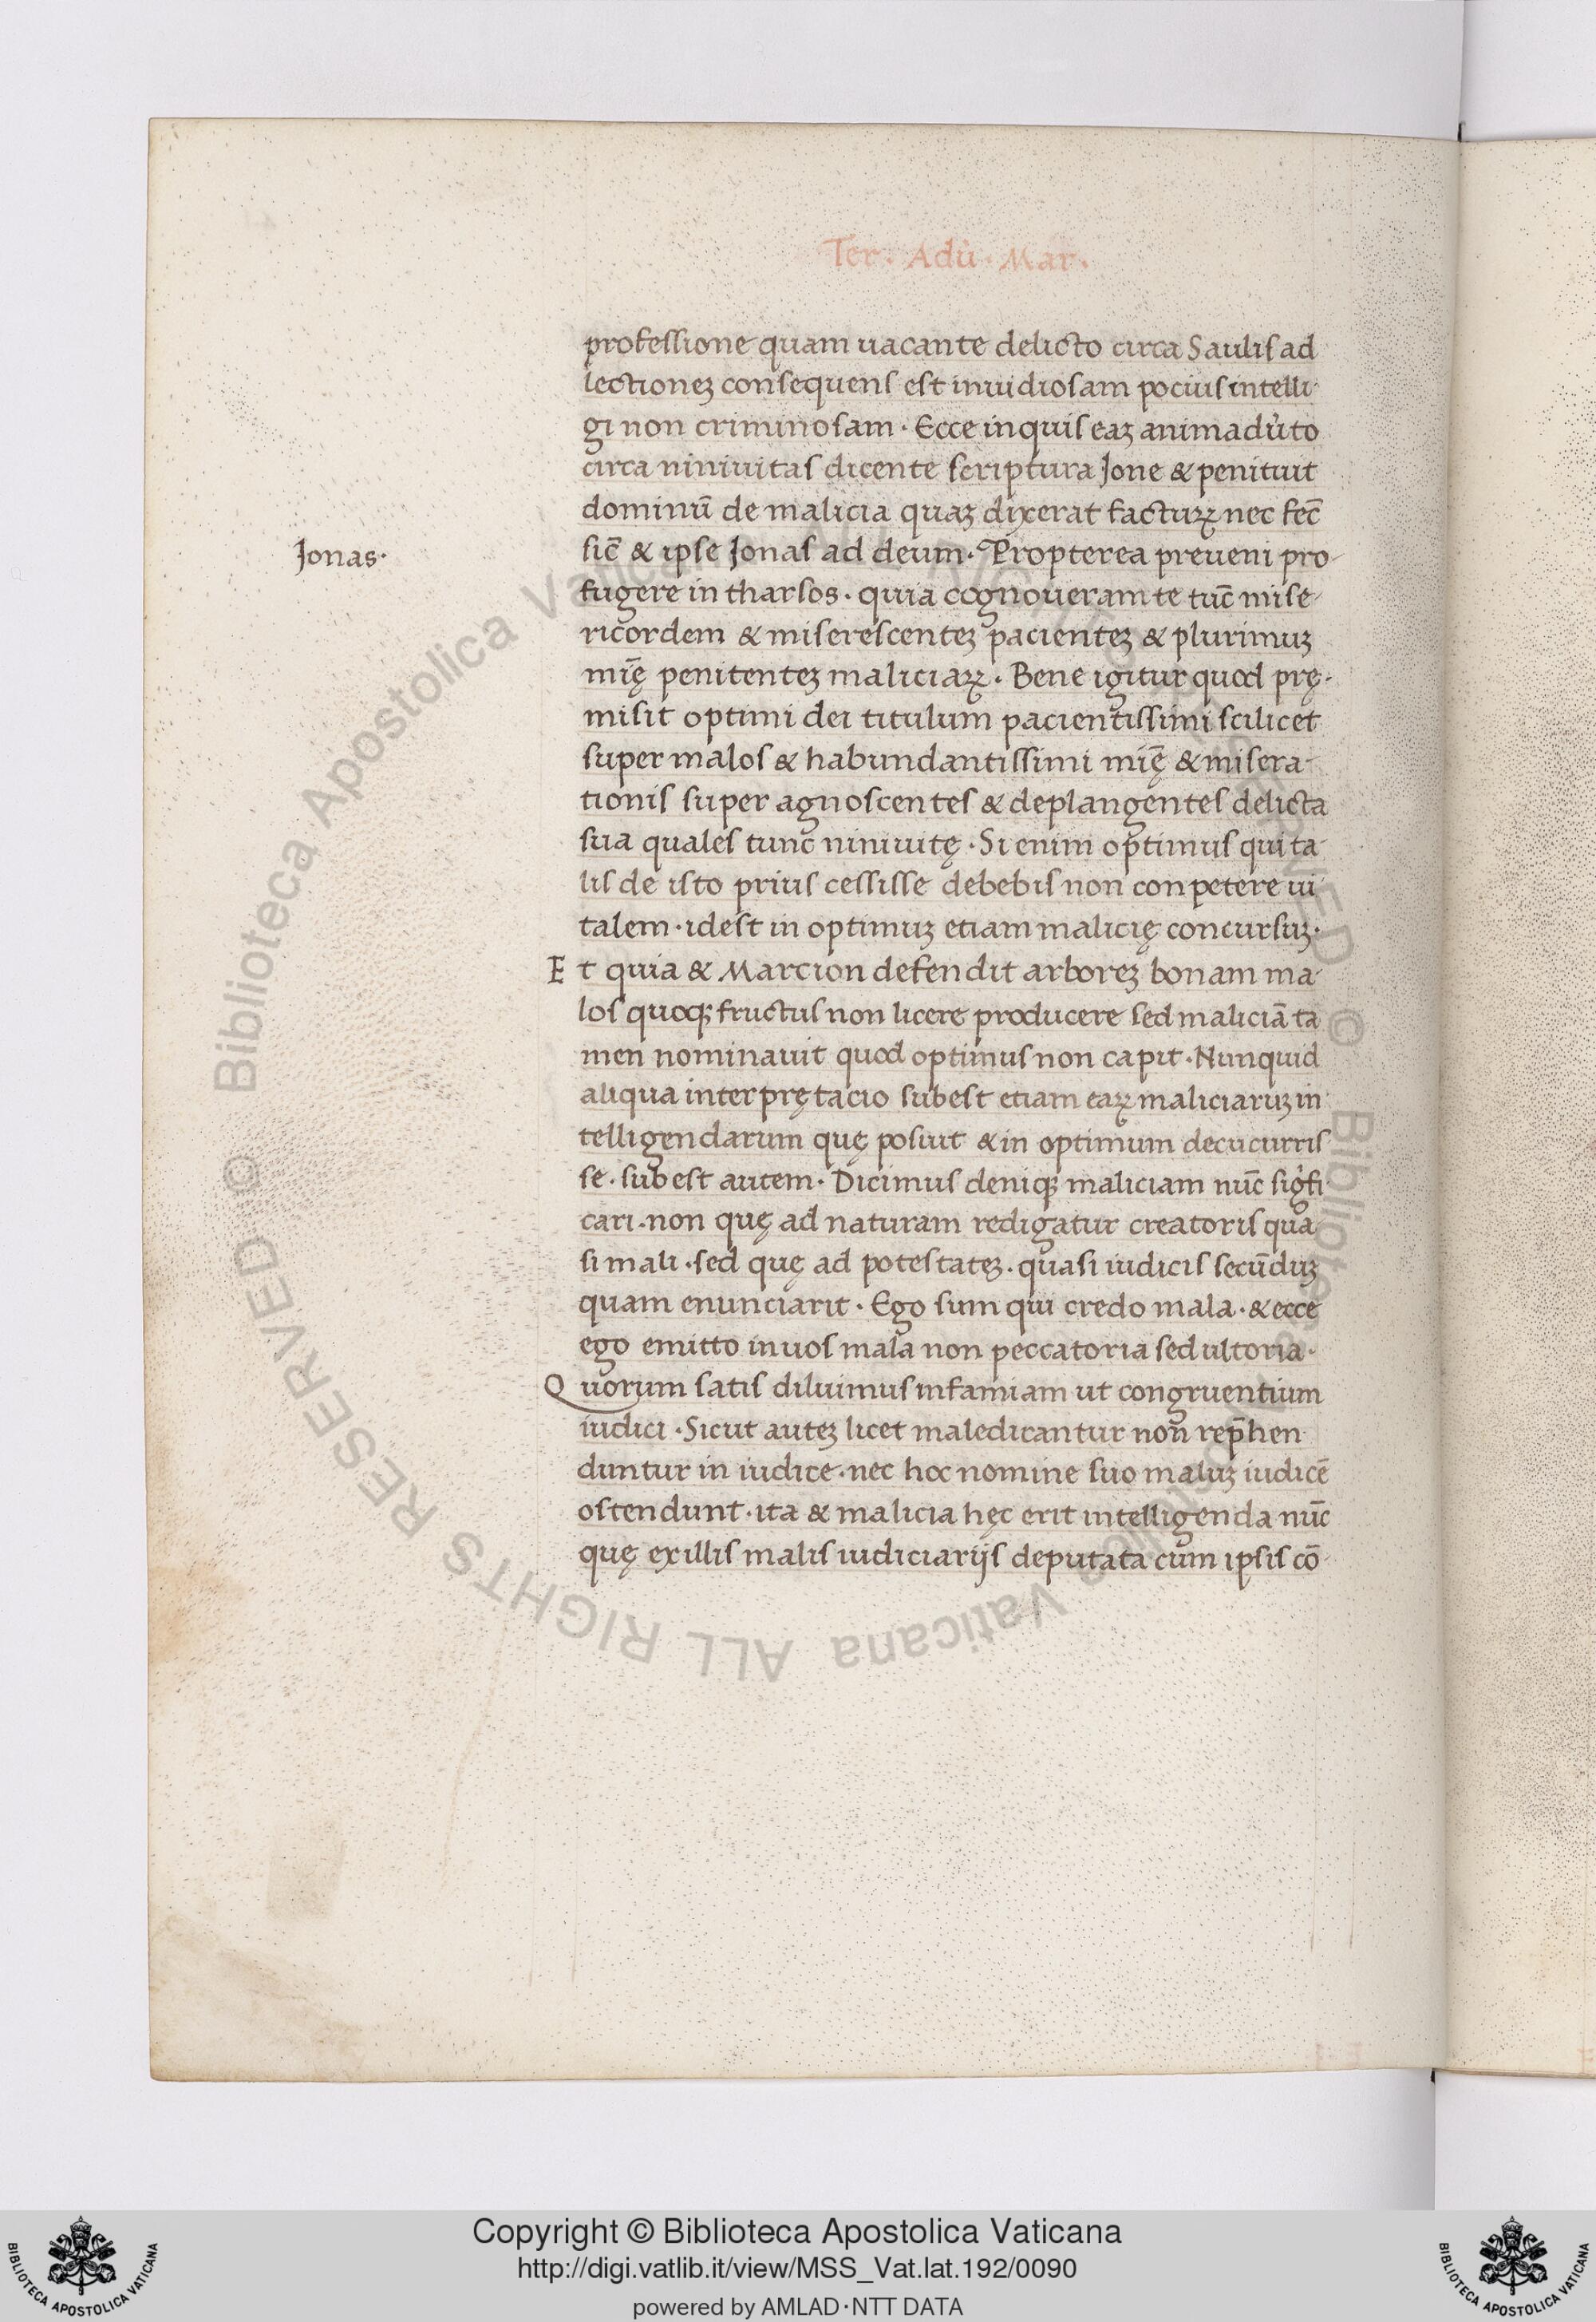 Ter. Adu̾. Mar.
professione quam uacante delicto circa Saulis ad
lectioneʒ consequens est inuidiosam pocius intelli-
gi non criminosam. Ecce inquis eaʒ animadu̾to
circa niniuitas dicente scriptura Jone & penituit
dominū de malicia quaʒ dixerat facturꝝ nec fec̄
Jonas.
sic̄ & ipse Jonas ad deum. Propterea preueni pro-
fugere in tharsos. quia cognoueram te tūc mise-
ricordem & miserescenteʒ pacienteʒ & plurimuʒ
mīę penitenteʒ maliciaꝝ. Bene igitur quod prę-
misit optimi dei titulum pacientissimi scilicet
super malos & habundantissimi mīę & misera-
tionis super agnoscentes & deplangentes delicta
sua quales tunc niniuitę. Si enim optimus qui ta-
lis de isto prius cessisse debebis non conpetere ui
talem. idest in optimuʒ etiam malicię concursuʒ.
Et quia & Marcion defendit arboreʒ bonam ma-
los quoqꝫ fructus non licere producere sed maliciā ta
men nominauit quod optimus non capit. Nunquid
aliqua interprętacio subest etiam eaꝝ maliciaruʒ in
telligendarum quę posiut & in optimum decucurris
se. subest autem. Dicimus deniqꝫ maliciam nūc sig̾fi
cari. non quę ad naturam redigatur creatoris qua
si mali. sed quę ad potestateʒ. quasi iudicis secūduʒ
quam enunciarit. Ego sum qui credo mala. & ecce
ego emitto in uos mala non peccatoria sed ultoria.
Quorum satis diluimus infamiam ut congruentium
iudici. Sicut auteʒ licet maledicantur non̄ rep̄hen
duntur in iudice. nec hoc nomine suo maluʒ iudicē
ostendunt. ita & malicia hęc erit intelligenda nūc
quę ex illis malis iudiciarijs deputata cum ipsis cō-
Copyright © Biblioteca Apostolica Vaticana
http://digi.vatlib.it/view/MSS_Vat.lat.192/0090
powered by AMLAD·NTT DATA
BIBLIOTECA APOSTOLICA VATICANA
BIBLIOTECA APOSTOLICA VATICANA
© Biblioteca Apostolica Vaticana ALL RIGHTS RESERVED
© Biblioteca Apostolica Vaticana ALL RIGHTS RESERVED